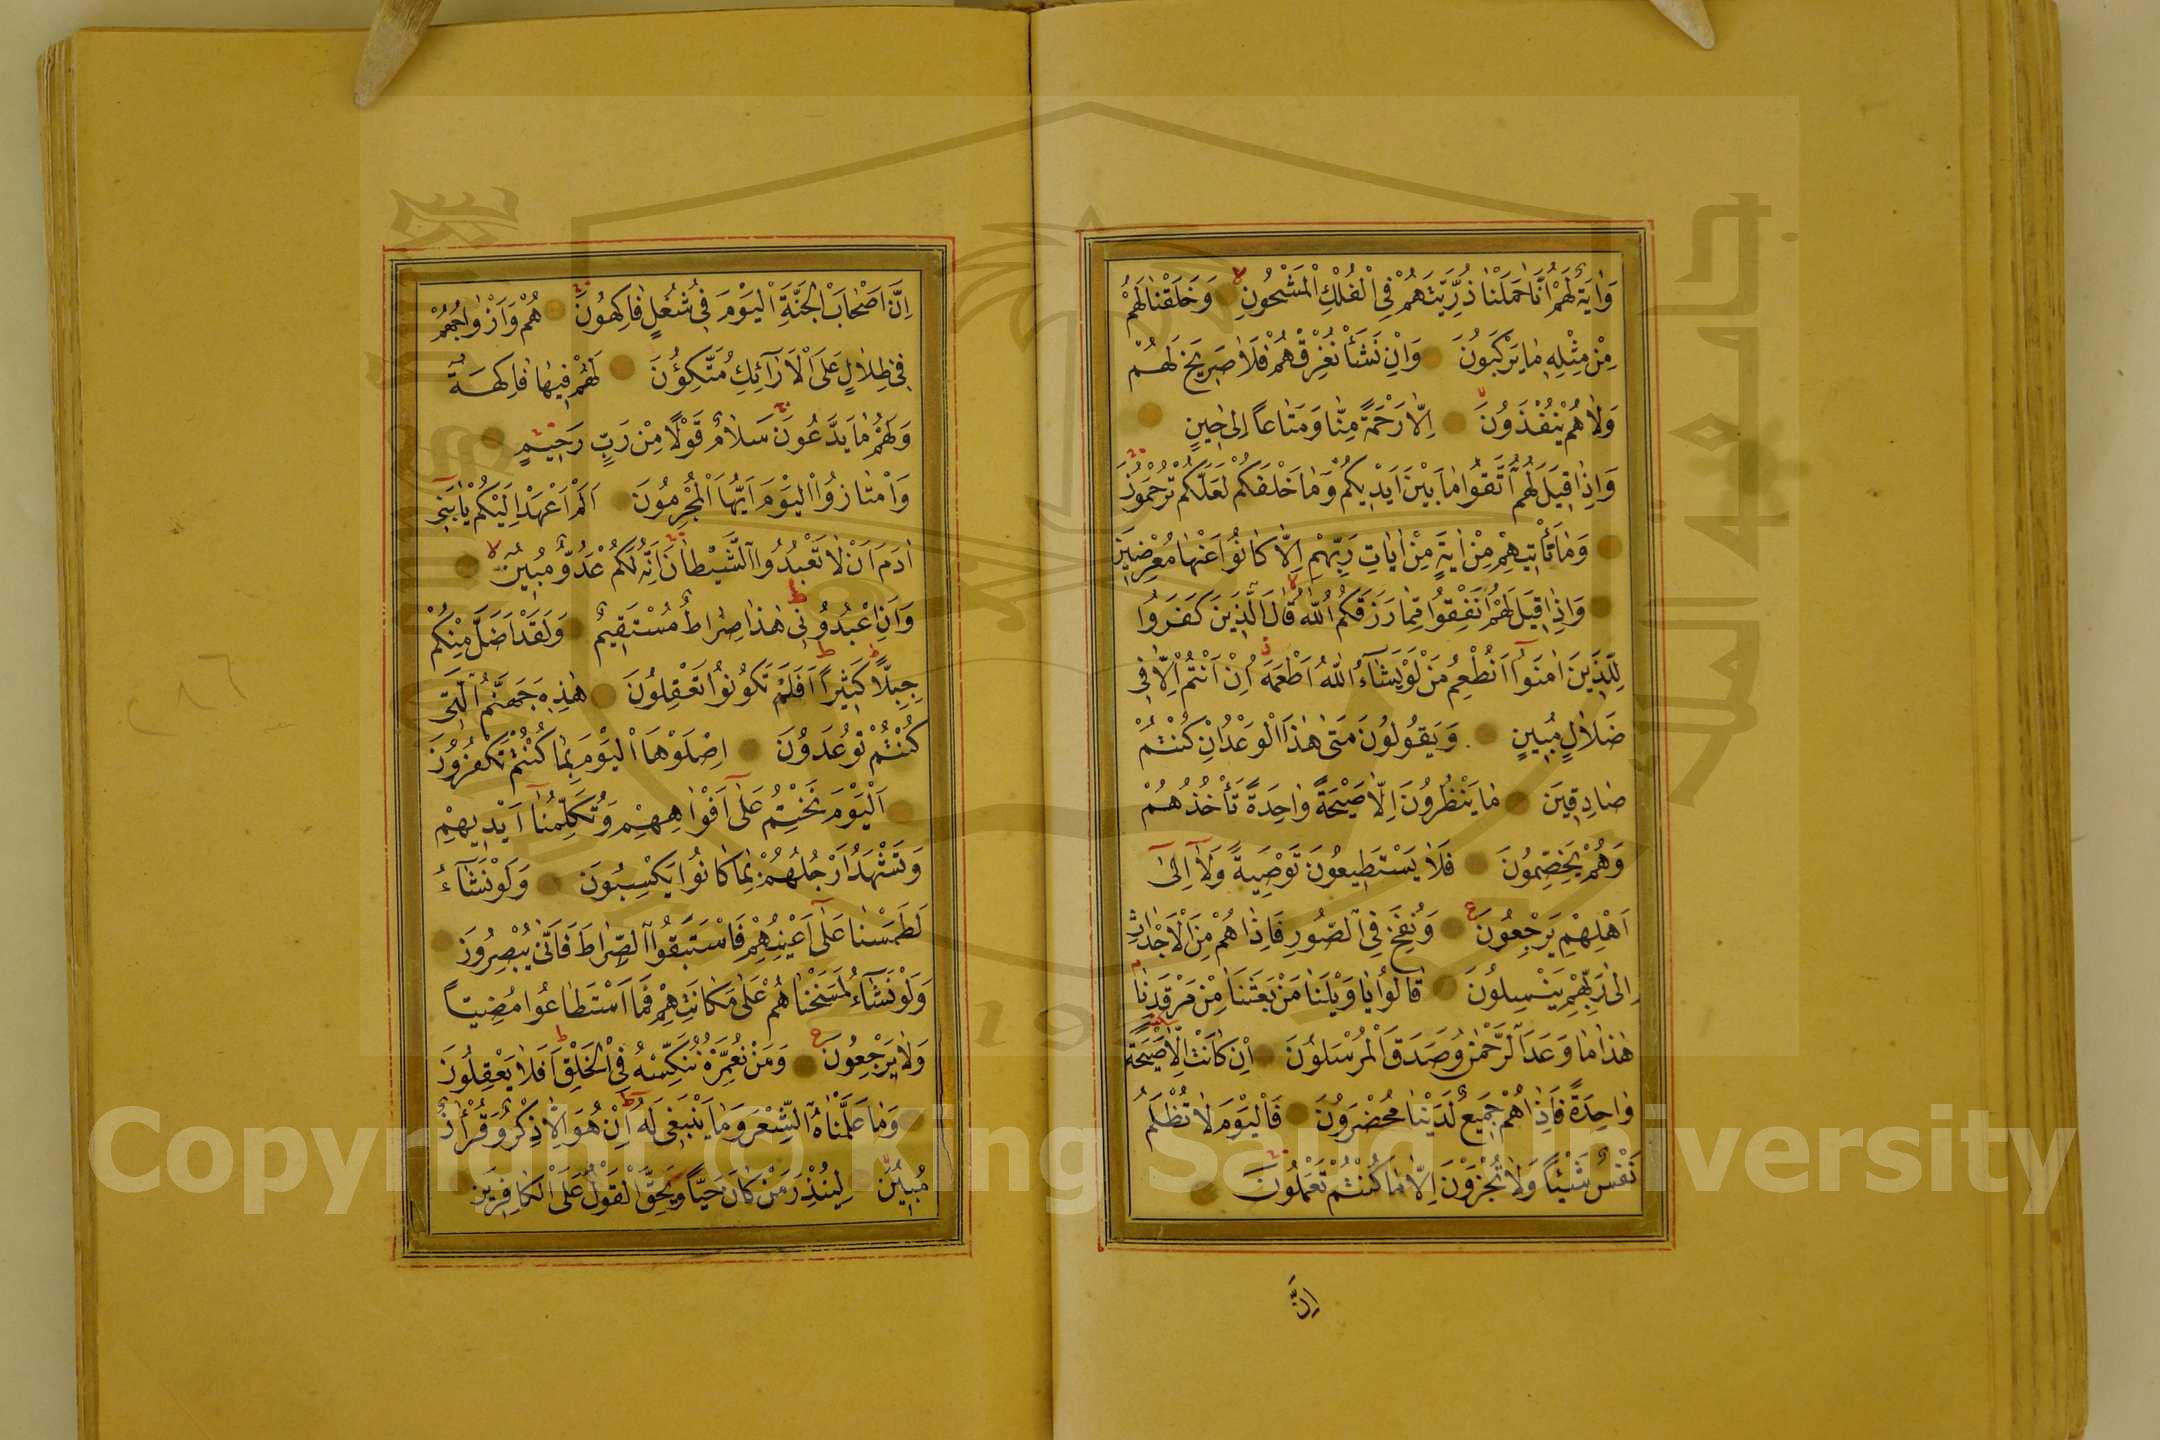 وَاٰيَةٌ لَهُمْ اَنَّا حَمَلْنَا ذُرِّيَّتَهُمْ فِى الْفُلْكِ الْمَشْحُونِ وَخَلَقْنَا لَهُمْ
مِنْ مِثْلِهِ مَا يَرْكَبُونَ وَاِنْ نَشَأْ نُغْرِقْهُمْ فَلَا صَرِيخَ لَهُمْ
وَلَا هُمْ يُنْقَذُونَ اِلَّا رَحْمَةً مِنَّا وَمَتَاعًا اِلٰى حِينٍ
وَاِذَا قِيلَ لَهُمُ اتَّقُوا مَا بَيْنَ اَيْدِيكُمْ وَمَا خَلْفَكُمْ لَعَلَّكُمْ تُرْحَمُونَ
وَمَا تَأْتِيهِمْ مِنْ اٰيَةٍ مِنْ اٰيَاتِ رَبِّهِمْ اِلَّا كَانُوا عَنْهَا مُعْرِضِينَ
وَاِذَا قِيلَ لَهُمْ اَنْفِقُوا مِمَّا رَزَقَكُمُ اللّٰهُ قَالَ الَّذِينَ كَفَرُوا
لِلَّذِينَ اٰمَنُوا اَنُطْعِمُ مَنْ لَوْ يَشَاءُ اللّٰهُ اَطْعَمَهُ اِنْ اَنْتُمْ اِلَّا فِى
ضَلَالٍ مُبِينٍ وَيَقُولُونَ مَتٰى هٰذَا الْوَعْدُ اِنْ كُنْتُمْ
صَادِقِينَ مَا يَنْظُرُونَ اِلَّا صَيْحَةً وَاحِدَةً تَأْخُذُهُمْ
وَهُمْ يَخِصِّمُونَ فَلَا يَسْتَطِيعُونَ تَوْصِيَةً وَلَا اِلٰى
اَهْلِهِمْ يَرْجِعُونَ وَنُفِخَ فِى الصُّورِ فَاِذَا هُمْ مِنَ الْاَجْدَاثِ
اِلٰى رَبِّهِمْ يَنْسِلُونَ قَالُوا يَا وَيْلَنَا مَنْ بَعَثَنَا مِنْ مَرْقَدِنَا
هٰذَا مَا وَعَدَ الرَّحْمٰنُ وَصَدَقَ الْمُرْسَلُونَ اِنْ كَانَتْ اِلَّا صَيْحَةً
وَاحِدَةً فَاِذَا هُمْ جَمِيعٌ لَدَيْنَا مُحْضَرُونَ فَالْيَوْمَ لَا تُظْلَمُ
نَفْسٌ شَيْئًا وَلَا تُجْزَوْنَ اِلَّا مَا كُنْتُمْ تَعْمَلُونَ
اِنَّ
اِنَّ اَصْحَابَ الْجَنَّةِ الْيَوْمَ فِى شُغُلٍ فَاكِهُونَ هُمْ وَاَزْوَاجُهُمْ
فِى ظِلَالٍ عَلَى الْاَرَائِكِ مُتَّكِؤُنَ لَهُمْ فِيهَا فَاكِهَةٌ
وَلَهُمْ مَا يَدَّعُونَ سَلَامٌ قَوْلًا مِنْ رَبٍّ رَحِيمٍ
وَامْتَازُوا الْيَوْمَ اَيُّهَا الْمُجْرِمُونَ اَلَمْ اَعْهَدْ اِلَيْكُمْ يَا بَنِى
اٰدَمَ اَنْ لَا تَعْبُدُوا الشَّيْطَانَ اِنَّهُ لَكُمْ عَدُوٌّ مُبِينٌ
وَاَنِ اعْبُدُونِى هٰذَا صِرَاطٌ مُسْتَقِيمٌ وَلَقَدْ اَضَلَّ مِنْكُمْ
جِبِلًّا كَثِيرًا اَفَلَمْ تَكُونُوا تَعْقِلُونَ هٰذِهِ جَهَنَّمُ الَّتِى
كُنْتُمْ تُوعَدُونَ اِصْلَوْهَا الْيَوْمَ بِمَا كُنْتُمْ تَكْفُرُونَ
اَلْيَوْمَ نَخْتِمُ عَلٰى اَفْوَاهِهِمْ وَتُكَلِّمُنَا اَيْدِيهِمْ
وَتَشْهَدُ اَرْجُلُهُمْ بِمَا كَانُوا يَكْسِبُونَ وَلَوْ نَشَاءُ
لَطَمَسْنَا عَلٰى اَعْيُنِهِمْ فَاسْتَبَقُوا الصِّرَاطَ فَاَنّٰى يُبْصِرُونَ
وَلَوْ نَشَاءُ لَمَسَخْنَاهُمْ عَلٰى مَكَانَتِهِمْ فَمَا اسْتَطَاعُوا مُضِيًّا
وَلَا يَرْجِعُونَ وَمَنْ نُعَمِّرْهُ نُنَكِّسْهُ فِى الْخَلْقِ اَفَلَا يَعْقِلُونَ
وَمَا عَلَّمْنَاهُ الشِّعْرَ وَمَا يَنْبَغِى لَهُ اِنْ هُوَ اِلَّا ذِكْرٌ وَقُرْاٰنٌ
مُبِينٌ لِيُنْذِرَ مَنْ كَانَ حَيًّا وَيَحِقَّ الْقَوْلُ عَلَى الْكَافِرِينَ
Copyright © King Saud University